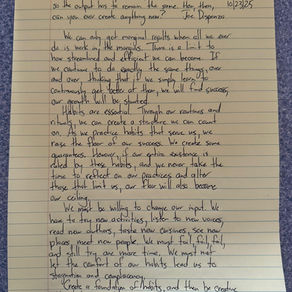 so the output has to remain the same. How, then, 10/23/25
can you ever create anything new? Joe Dispenza
We can only get marginal results when all we ever
do is work in the margins. There is a limit to
how streamlined and efficient we can become. If
we continue to do exactly the same things, over
and over, thinking that if we simply learn to
continuously get better at them, we will find success,
our growth will be stunted.
Habits are essential. Through our routines and
rituals, we can create a structure we can count
on. As we practice habits that serve us, we
raise the floor of our success. We create some
guarantees. However, if our entire existence is
ruled by these habits, and we never take the
time to reflect on our practices and alter
those that limit us, our floor will also become
our ceiling.
We must be willing to change our input. We
have to try new activities, listen to new voices,
read new authors, taste new cuisines, see new
places, meet new people. We must fail, fail, fail,
and still try one more time. We must not
let the comfort of our habits lead us to
stagnation and complacency.
Create a foundation of habits, and then be creative